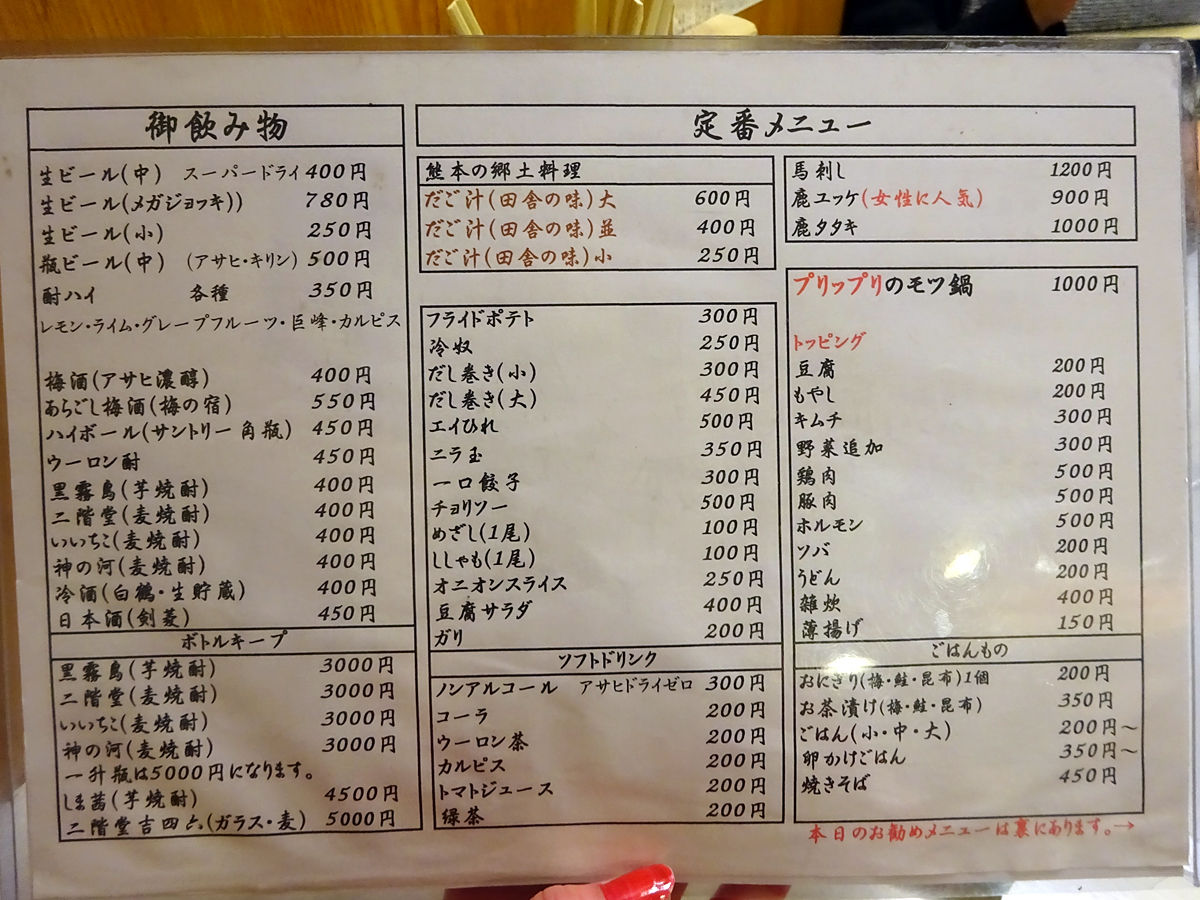 御飲み物
生ビール(中) スーパードライ 400円
生ビール(メガジョッキ)) 780円
生ビール(小) 250円
瓶ビール(中) (アサヒ・キリン) 500円
酎ハイ 各種 350円
レモン・ライム・グレープフルーツ・巨峰・カルピス
梅酒(アサヒ濃醇) 400円
あらごし梅酒(梅の宿) 550円
ハイボール(サントリー角瓶) 450円
ウーロン酎 450円
黒霧島(芋焼酎) 400円
二階堂(麦焼酎) 400円
いいちこ(麦焼酎) 400円
神の河(麦焼酎) 400円
冷酒(白鶴・生貯蔵) 400円
日本酒(剣菱) 450円
ボトルキープ
黒霧島(芋焼酎) 3000円
二階堂(麦焼酎) 3000円
いいちこ(麦焼酎) 3000円
神の河(麦焼酎) 3000円
一升瓶は5000円になります。
しま茜(芋焼酎) 4500円
二階堂吉四六(ガラス・麦) 5000円
定番メニュー
熊本の郷土料理
だご汁(田舎の味)大 600円
だご汁(田舎の味)並 400円
だご汁(田舎の味)小 250円
フライドポテト 300円
冷奴 250円
だし巻き(小) 300円
だし巻き(大) 450円
エイひれ 500円
ニラ玉 350円
一口餃子 300円
チョリソー 500円
めざし(1尾) 100円
ししゃも(1尾) 100円
オニオンスライス 250円
豆腐サラダ 400円
ガリ 200円
ソフトドリンク
ノンアルコール アサヒドライゼロ 300円
コーラ 200円
ウーロン茶 200円
カルピス 200円
トマトジュース 200円
緑茶 200円
馬刺し 1200円
鹿ユッケ(女性に人気) 900円
鹿タタキ 1000円
プリップリのモツ鍋 1000円
トッピング
豆腐 200円
もやし 200円
キムチ 300円
野菜追加 300円
鶏肉 500円
豚肉 500円
ホルモン 500円
ソバ 200円
うどん 200円
雑炊 400円
薄揚げ 150円
ごはんもの
おにぎり(梅・鮭・昆布)1個 200円
お茶漬け(梅・鮭・昆布) 350円
ごはん(小・中・大) 200円〜
卵かけごはん 350円〜
焼きそば 450円
本日のお勧めメニューは裏にあります。→